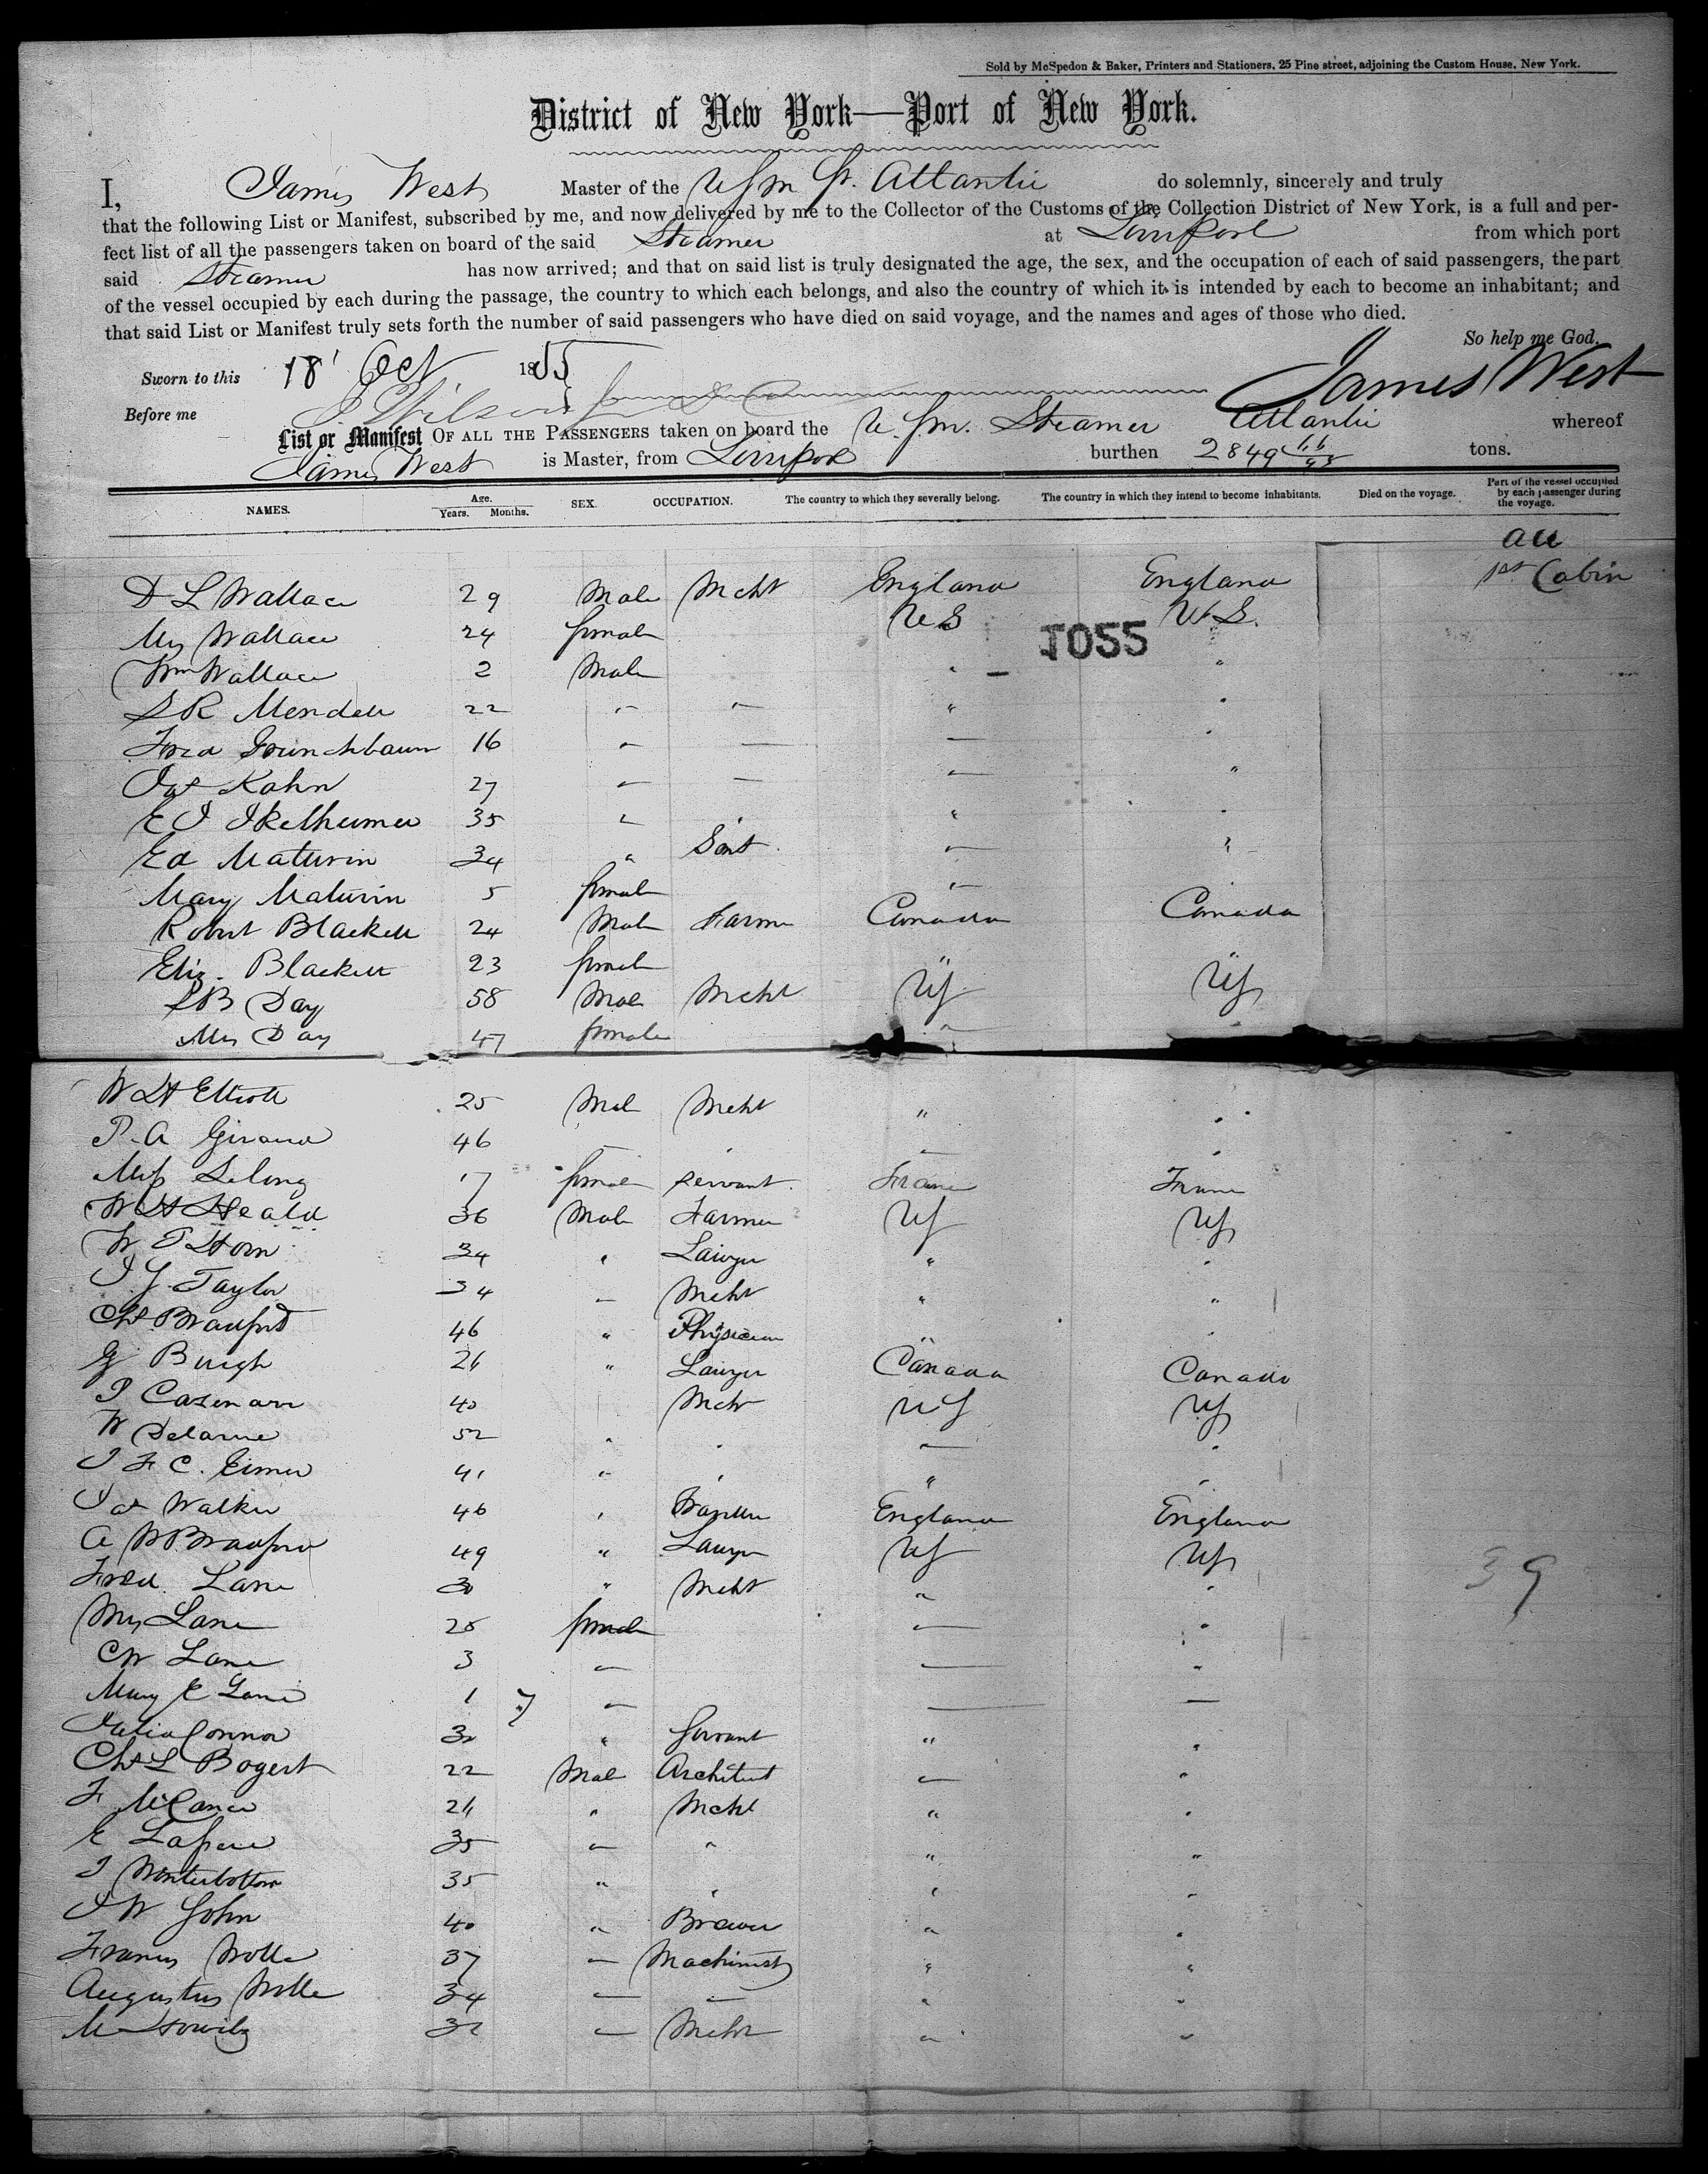 Sold by McSpedon & Baker, Printers and Stationers, 25 Pine street, adjoining the Custom House, New York.
District of New York—Port of New York.
I, James West Master of the USM St. Atlantic do solemnly, sincerely and truly
that the following List or Manifest, subscribed by me, and now delivered by me to the Collector of the Customs of the Collection District of New York, is a full and per-
fect list of all the passengers taken on board of the said Steamer at Liverpool from which port
said Steamer has now arrived; and that on said list is truly designated the age, the sex, and the occupation of each of said passengers, the part
of the vessel occupied by each during the passage, the country to which each belongs, and also the country of which it is intended by each to become an inhabitant; and
that said List or Manifest truly sets forth the number of said passengers who have died on said voyage, and the names and ages of those who died.
So help me God.
Sworn to this 18 Oct 1855
James West
Before me
List or Manifest OF ALL THE PASSENGERS taken on board the U.S.M. Steamer Atlantic whereof
James West is Master, from Liverpool burthen 2849 66/95 tons.
NAMES. Age. Years. Months. SEX. OCCUPATION. The country to which they severally belong. The country in which they intend to become inhabitants. Died on the voyage. Part of the vessel occupied by each passenger during the voyage.
all
D L Wallace 29 Male Mcht England England 1st Cabin
Mrs Wallace 24 female US U.S.
1055
Wm Wallace 2 Male " "
S R Mendell 22 " " " "
Fred 16 " " " "
Jas Kahn 27 " " " "
E J Ikelheimer 35 " " " "
Ed Maturin 34 " Gent " "
Mary Maturin 5 female "
Robert Blackett 24 Male Farmer Canada Canada
Eliz. Blackett 23 female " "
S B Day 58 Male Mcht US US
Mrs Day 47 female " "
W H Elliott 25 Male Mcht " "
P. A Giraud 46 " " "
Miss Lelong 17 female servant France France
W H Heald 36 Male Farmer US US
W T Horn 34 " Lawyer " "
J G. Taylor 34 " Mcht " "
Chs Bradford 46 " Physician " "
G Burgh 26 " Lawyer Canada Canada
J Casenave 40 Mcht US US
W Delarue 52 " " " "
J F C. Eimer 41 " " " "
Jas Walker 46 " Traveller England England
A W Bradford 49 " Lawyer US US
Fred. Lane 30 " Mcht " "
39
Mrs Lane 25 female " "
C W Lane 3 " " "
Mary E Lane 1 7 " " "
Julia Connor 30 " Servant " "
Chs L Bogert 22 Male Architect " "
F McCance 26 " Mcht " "
E 35 " " " "
J Winterbottom 35 " " " "
J W John 40 " Brewer " "
Francis Wolle 37 " Machinist " "
Augustus Wolle 34 " " " "
M 32 " Mcht " "